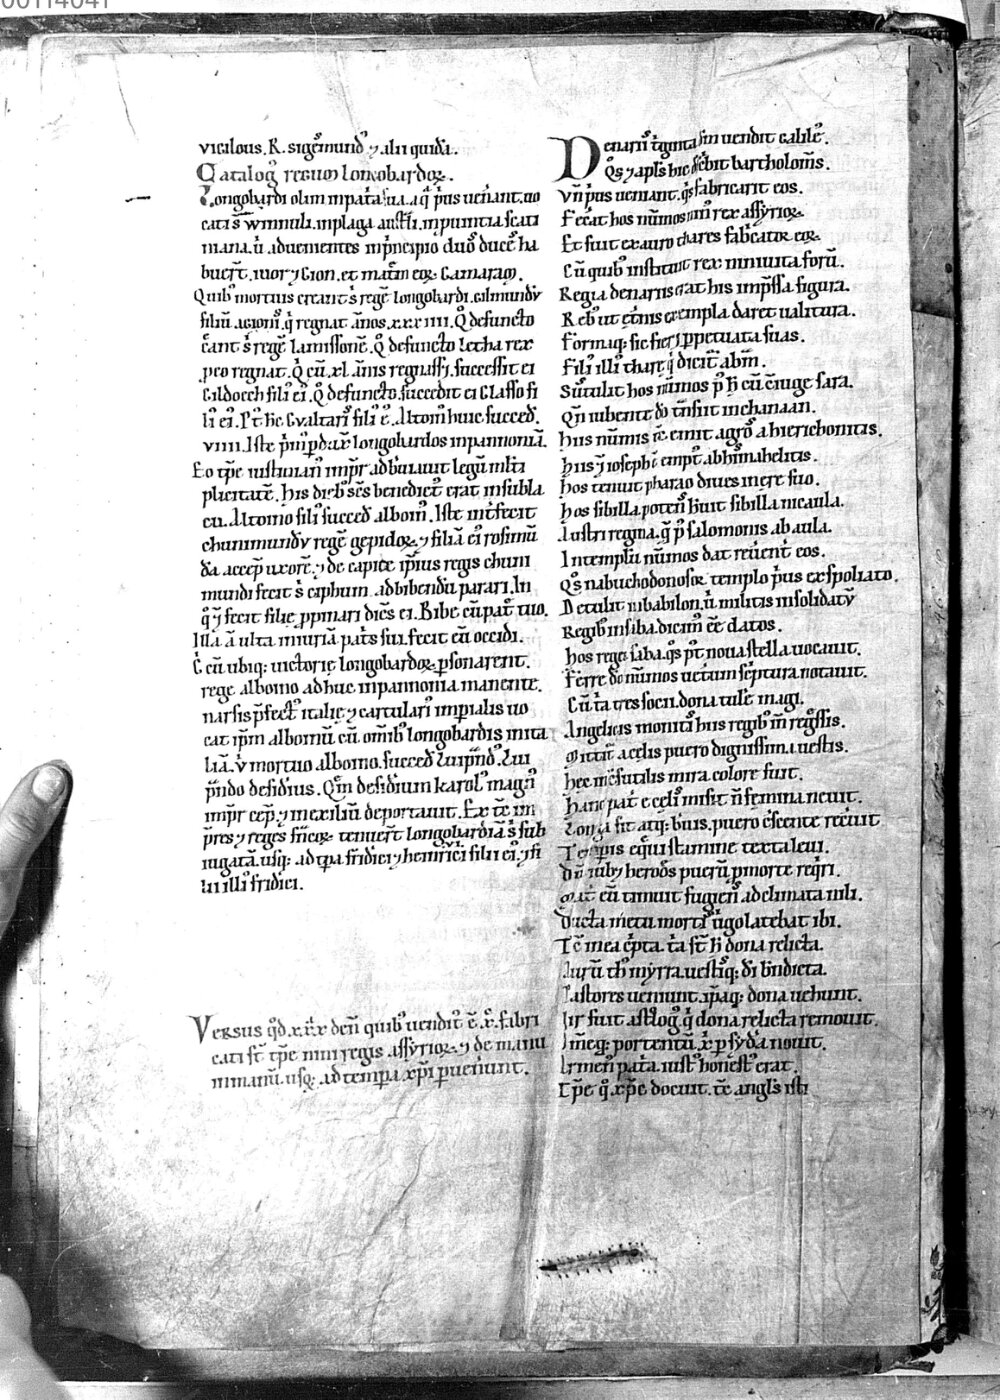 00114041
vicilous. R. sigem̄undꝰ ⁊ alii quidā.
Catalogꝰ regum longobardoꝝ.
Longobardi olim in patͥa sua a qͣ pͥus uen̄ant. uo
cati s̄ winnuli. in plaga aust̄li. in ꝓuintia scati
nana. ū aduenientes in pͥncipio duoꝰ duceˢ ha
buer̄t. iuor ⁊ Gion. et mat̄m eoꝝ. Gamaram.
Quibꝰ mortuis creant s̄ regē longobardi. gilmundū
filiū. agioniꝰ. qͥ regnat̄ ānos. xxxiiii. Qͦ defuncto
c̄ant s̄ regē lamissonē. Qͦ defuncto lecha rex
ꝑeo regnat̄. Qͥ cū. xl. ān̄is regnass̄. successit ei
Gildoech filiꝰ eiꝰ. Qͦ defuncto. succedit ei Glasso fi
liꝰ eiꝰ. P̄t̄ hic Gualtariꝰ filiꝰ ē. Altoin huic succed̄.
viiii. Iste pͥmꝰ ꝑdux̄ longobardos in pannoniā.
Eo tꝑe iustinianꝰ imꝑr adbūiauit legū ml̄ti
plicitatē. His diebꝰ sc̄s benedictꝰ erat in subla
cu. Altoino filiꝰ succed̄ alboinꝰ. Iste int̄fecit
chunimundū regē gepidoꝝ. ⁊ filiā eiꝰ rosimū
dā accep̄ uxorē. ⁊ de capite ip̄ius regis chuni
mundi fecit s̄ ciphum. ad bibendū parari. In
qͦ ⁊ fecit filię ꝓpinari dicēs ei. Bibe cū pat̄ tuo.
Illa ā ulta iniuriā patͥs sui. fecit eū occidi.
C̄ cū ubiqꝫ uictorię longobardoꝝ ꝑsonarent.
rege alboino adhuc in pannonia manente.
narsis p̄fectꝰ italię ⁊ cartulariꝰ imꝑialis uo
cat ip̄m alboinū. cū om̄ibꝰ longobardis in ita
liā. ū mortuo alboino. succed̄ luipͥndꝰ. lui
pͥndo desidius. Q̄m desidium karolꝰ magnꝰ
imꝑr cep̄. ⁊ in exiliū deportauit. Ex tc̄ im
ꝑres ⁊ reges fr̄ncoꝝ tenuer̄t longobardiā s̄ sub
iugatā. usqꝫ ad tꝑa fridͥici ⁊ heinrici filii eiꝰ. ⁊ fi
lii illiꝰ fridͥici.
Versus qͦd. xxx. den̄ quibꝰ uenditꝰ ē. xꝰ. fabri
cati st̄ tꝑe nini regis assyrioꝝ. ⁊ de manu
in manū. usqꝫ ad tempa xp̄i ꝑuen̄unt.
Denariiꝰ tͥginta dn̄m uendit galileꝰ.
Qͦs ⁊ apl̄s hic descͥbit bartholomꝰs.
Vn̄ pͥus ueniant. qͥs fabricarit eos.
Fecat hos nūmos ninꝰ rex assyrioꝝ.
Et fuit ex auro thares fabͥcator eoꝝ.
Cū quibꝰ instituit rex niniuita forū.
Regia denariis erat his imp̄ssa figura.
Rebꝰ ut et̄nis exempla daret ualitura.
Formaqꝫ sic fieri ꝑpetuata suas.
Filiꝰ illiꝰ thare qͥ dicit̄ abm̄.
Sustulit hos nūmos pꝰ h̄ cū c̄iuge sara.
Qn̄ iubente dō tn̄siit in chanaan.
Hiis nūmis tc̄ emit agrꝰ a hierichonitis.
Hiis ⁊ ioseph ē emptꝰ ab hismahelitis.
Hos tenuit pharao diues in ere suo.
Hos sibilla potenˢ h̄uit sibilla nicaula.
Austri regina. qͣ pꝰ salomonis ab aula.
In templū nūmos dat reū̄ent eos.
Qͦs nabuchodonosor templo pͥus exspoliato.
Detulit in babilon. ū militis insolidatū
Regibꝰ in saba. dicimꝰ ēē datos.
Hos reges saba. qͦs pꝰt noua stella uocauit.
Ferre dō nūmos uetum scͥptura notauit.
Cū ita tres socii. dona tulere magi.
Angelicis monitiˢ hiis regibꝰ inde regͣssis.
Mittit̄ a celis puero dignissima uestis.
Hec inc̄sutilis mira colore fuit.
Hanc pat̄ e celiˢ misit n̄ femina neuit.
Longa fit atqꝫ breuis. puero c̄scente recͥuit
Temp̄is eqͣui stamine textaleui.
Dū iubꝫ herodˢ puerū ꝓ morte reqͥri.
Mat̄ eū timuit fugienˢ ad climata nili.
Ducta metu mortiˢ uͥgo latebat ibi.
Tc̄ mea cͤpta. ita st̄ h̄ dona relicta.
Aurū thꝰ myrra. uestisqꝫ dī bn̄dicta.
Pastores ueniunt. ip̄aqꝫ dona uehunt.
Vir fuit astͦlogꝰ qͥ dona relicta remouit.
Armeniꝰ patͥa. iustꝰ honestꝰ erat.
Tꝑe qͦ xp̄c docuit. tc̄ angl̄s isti